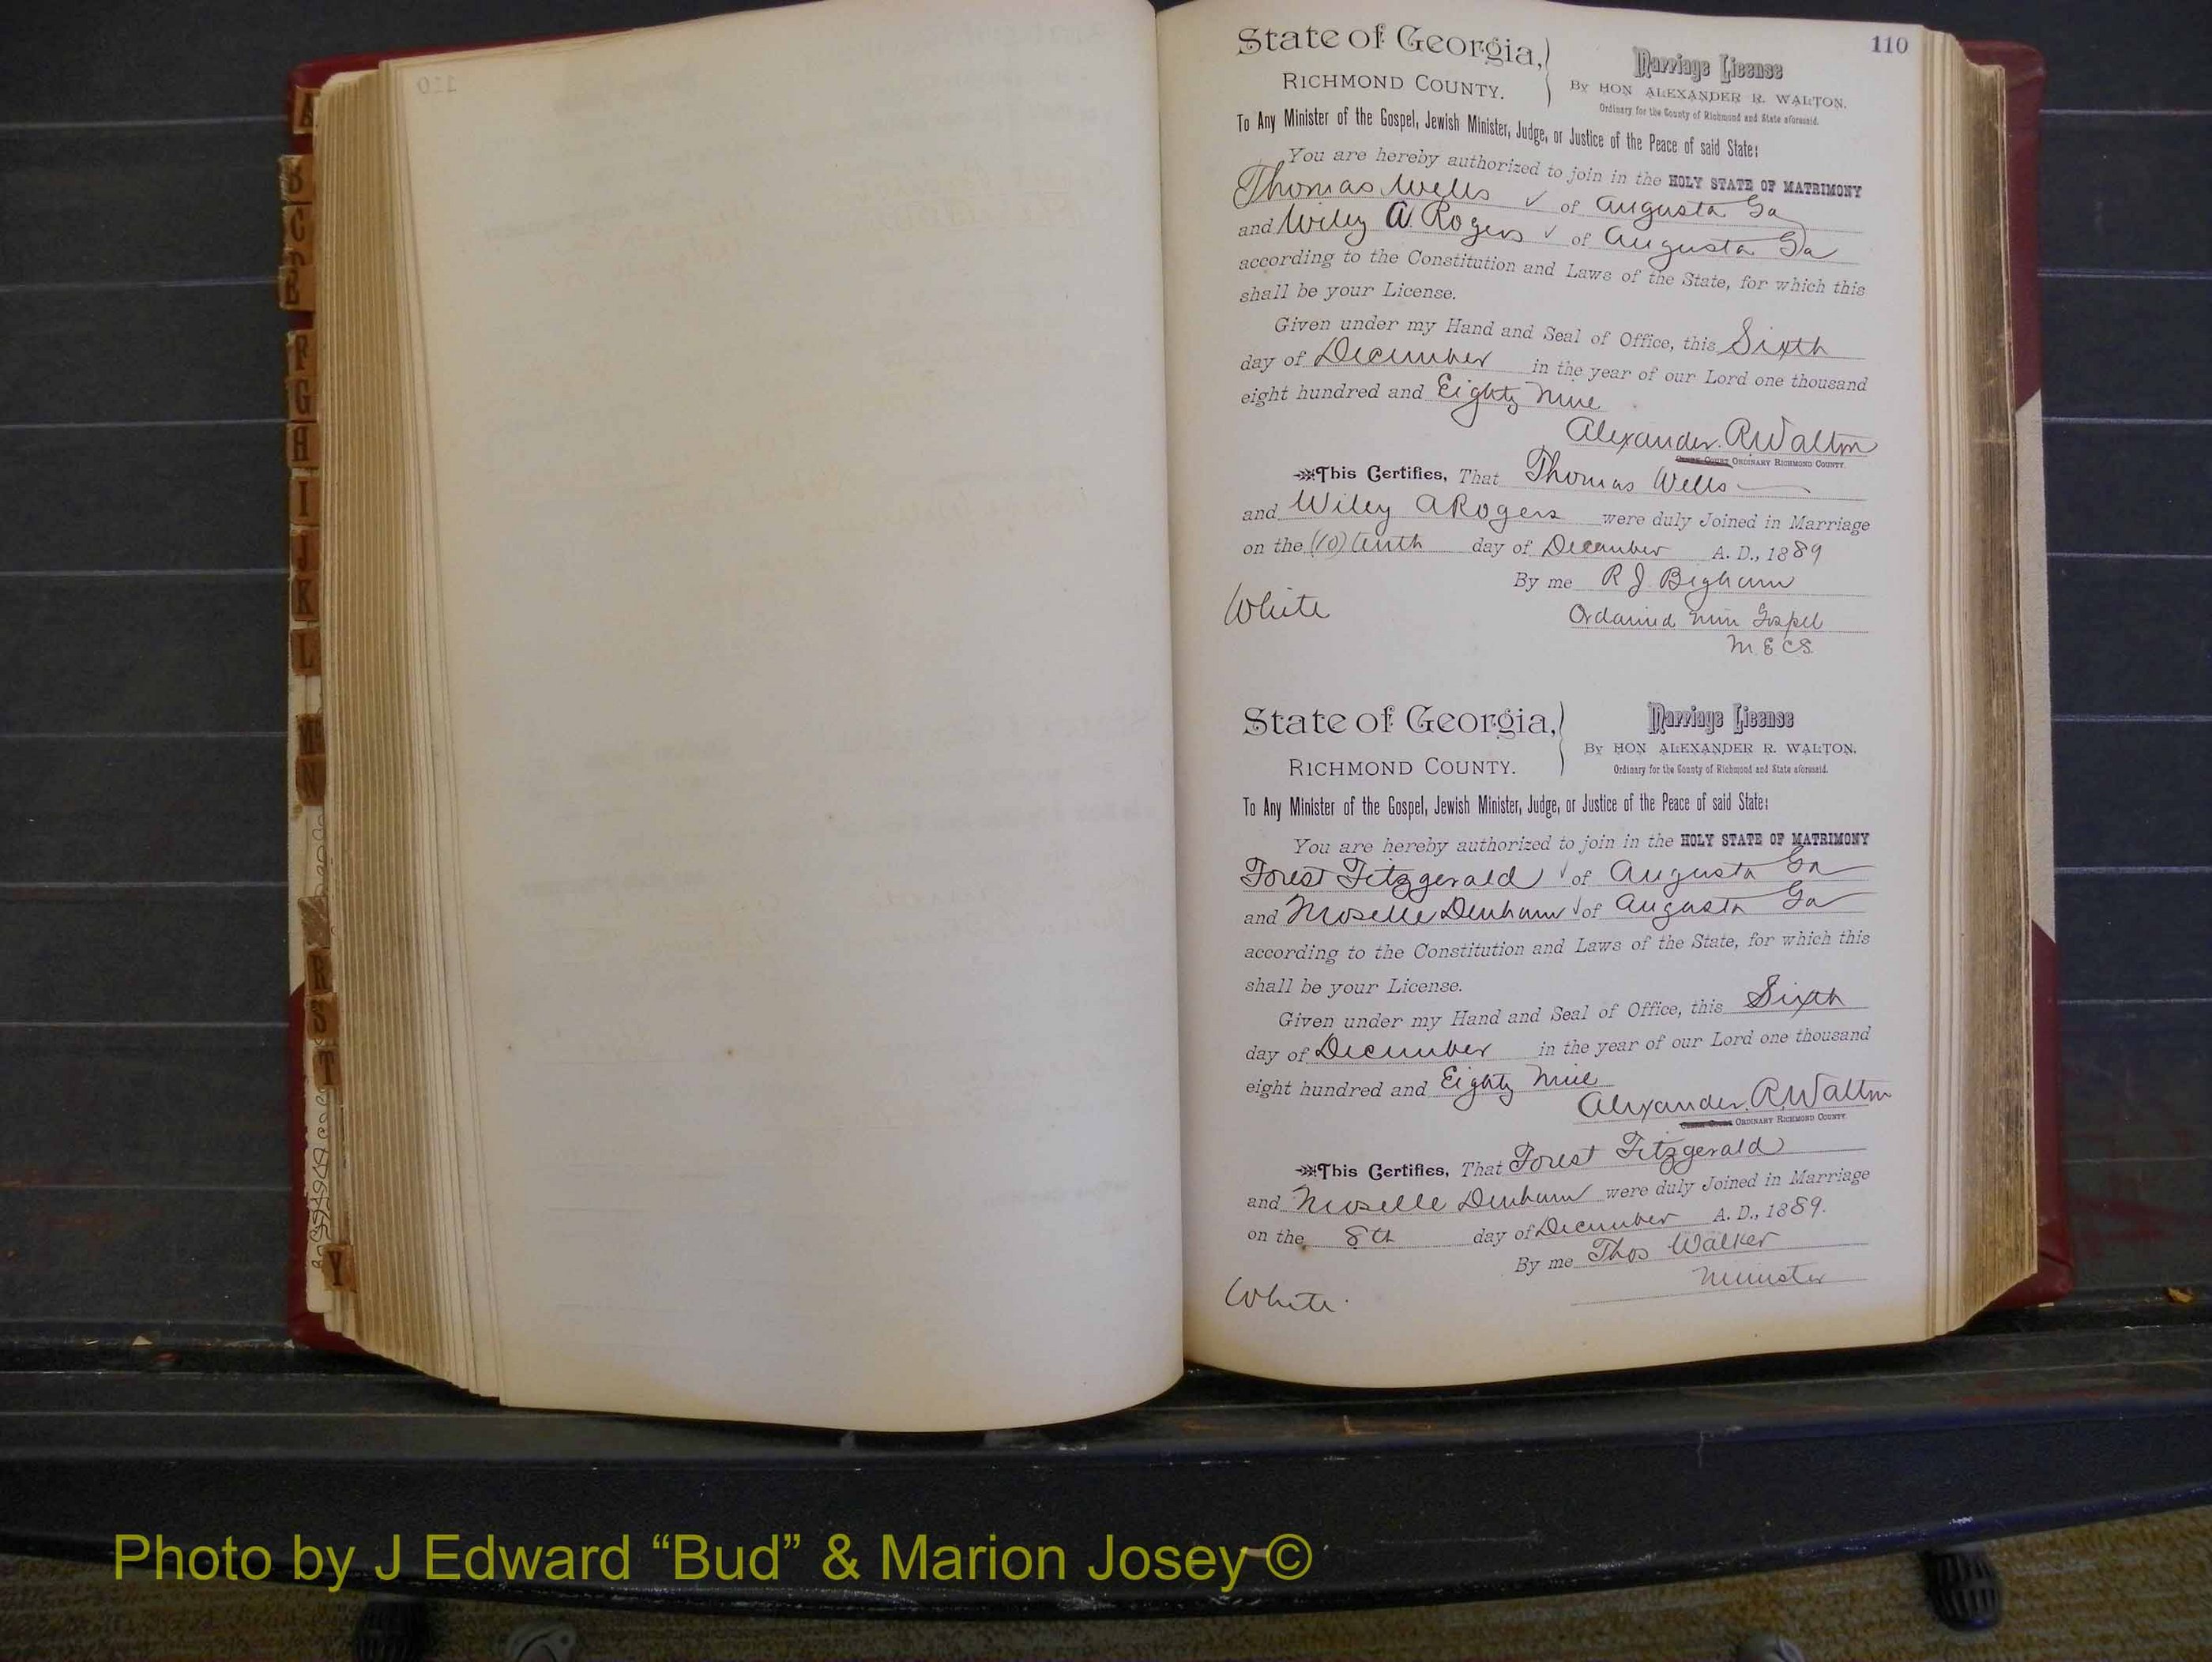 110
State of Georgia,
RICHMOND COUNTY.
Marriage License
By HON ALEXANDER R. WALTON,
Ordinary for the County of Richmond and State aforesaid.
To Any Minister of the Gospel, Jewish Minister, Judge, or Justice of the Peace of said State:
You are hereby authorized to join in the HOLY STATE OF MATRIMONY
Thomas Wells ✓ of Augusta Ga
and Wiley A Rogers ✓ of Augusta Ga
according to the Constitution and Laws of the State, for which this
shall be your License.
Given under my Hand and Seal of Office, this Sixth
day of December in the year of our Lord one thousand
eight hundred and Eighty Nine
Alexander. R Walton
ORDINARY RICHMOND COUNTY.
This Certifies, That Thomas Wells
and Wiley A Rogers were duly Joined in Marriage
on the (10) tenth day of December A. D., 1889
By me R J Bigham
White
Ordained Min Gospel
M. E C S.
State of Georgia,
RICHMOND COUNTY.
Marriage License
By HON ALEXANDER R. WALTON.
Ordinary for the County of Richmond and State aforesaid.
To Any Minister of the Gospel, Jewish Minister, Judge, or Justice of the Peace of said State:
You are hereby authorized to join in the HOLY STATE OF MATRIMONY
Forest Fitzgerald ✓ of Augusta Ga
and Moselle Denham ✓ of Augusta Ga
according to the Constitution and Laws of the State, for which this
shall be your License.
Given under my Hand and Seal of Office, this Sixth
day of December in the year of our Lord one thousand
eight hundred and Eighty Nine
Alexander. R. Walton
ORDINARY RICHMOND COUNTY.
This Certifies, That Forest Fitzgerald
and Moselle Denham were duly Joined in Marriage
on the 8th day of December A. D., 1889.
By me Thos Walker
Minister
White.
B
C
D
F
G
H
I
J
K
L
Mc
N
R
S
T
Y
Photo by J Edward “Bud” & Marion Josey ©